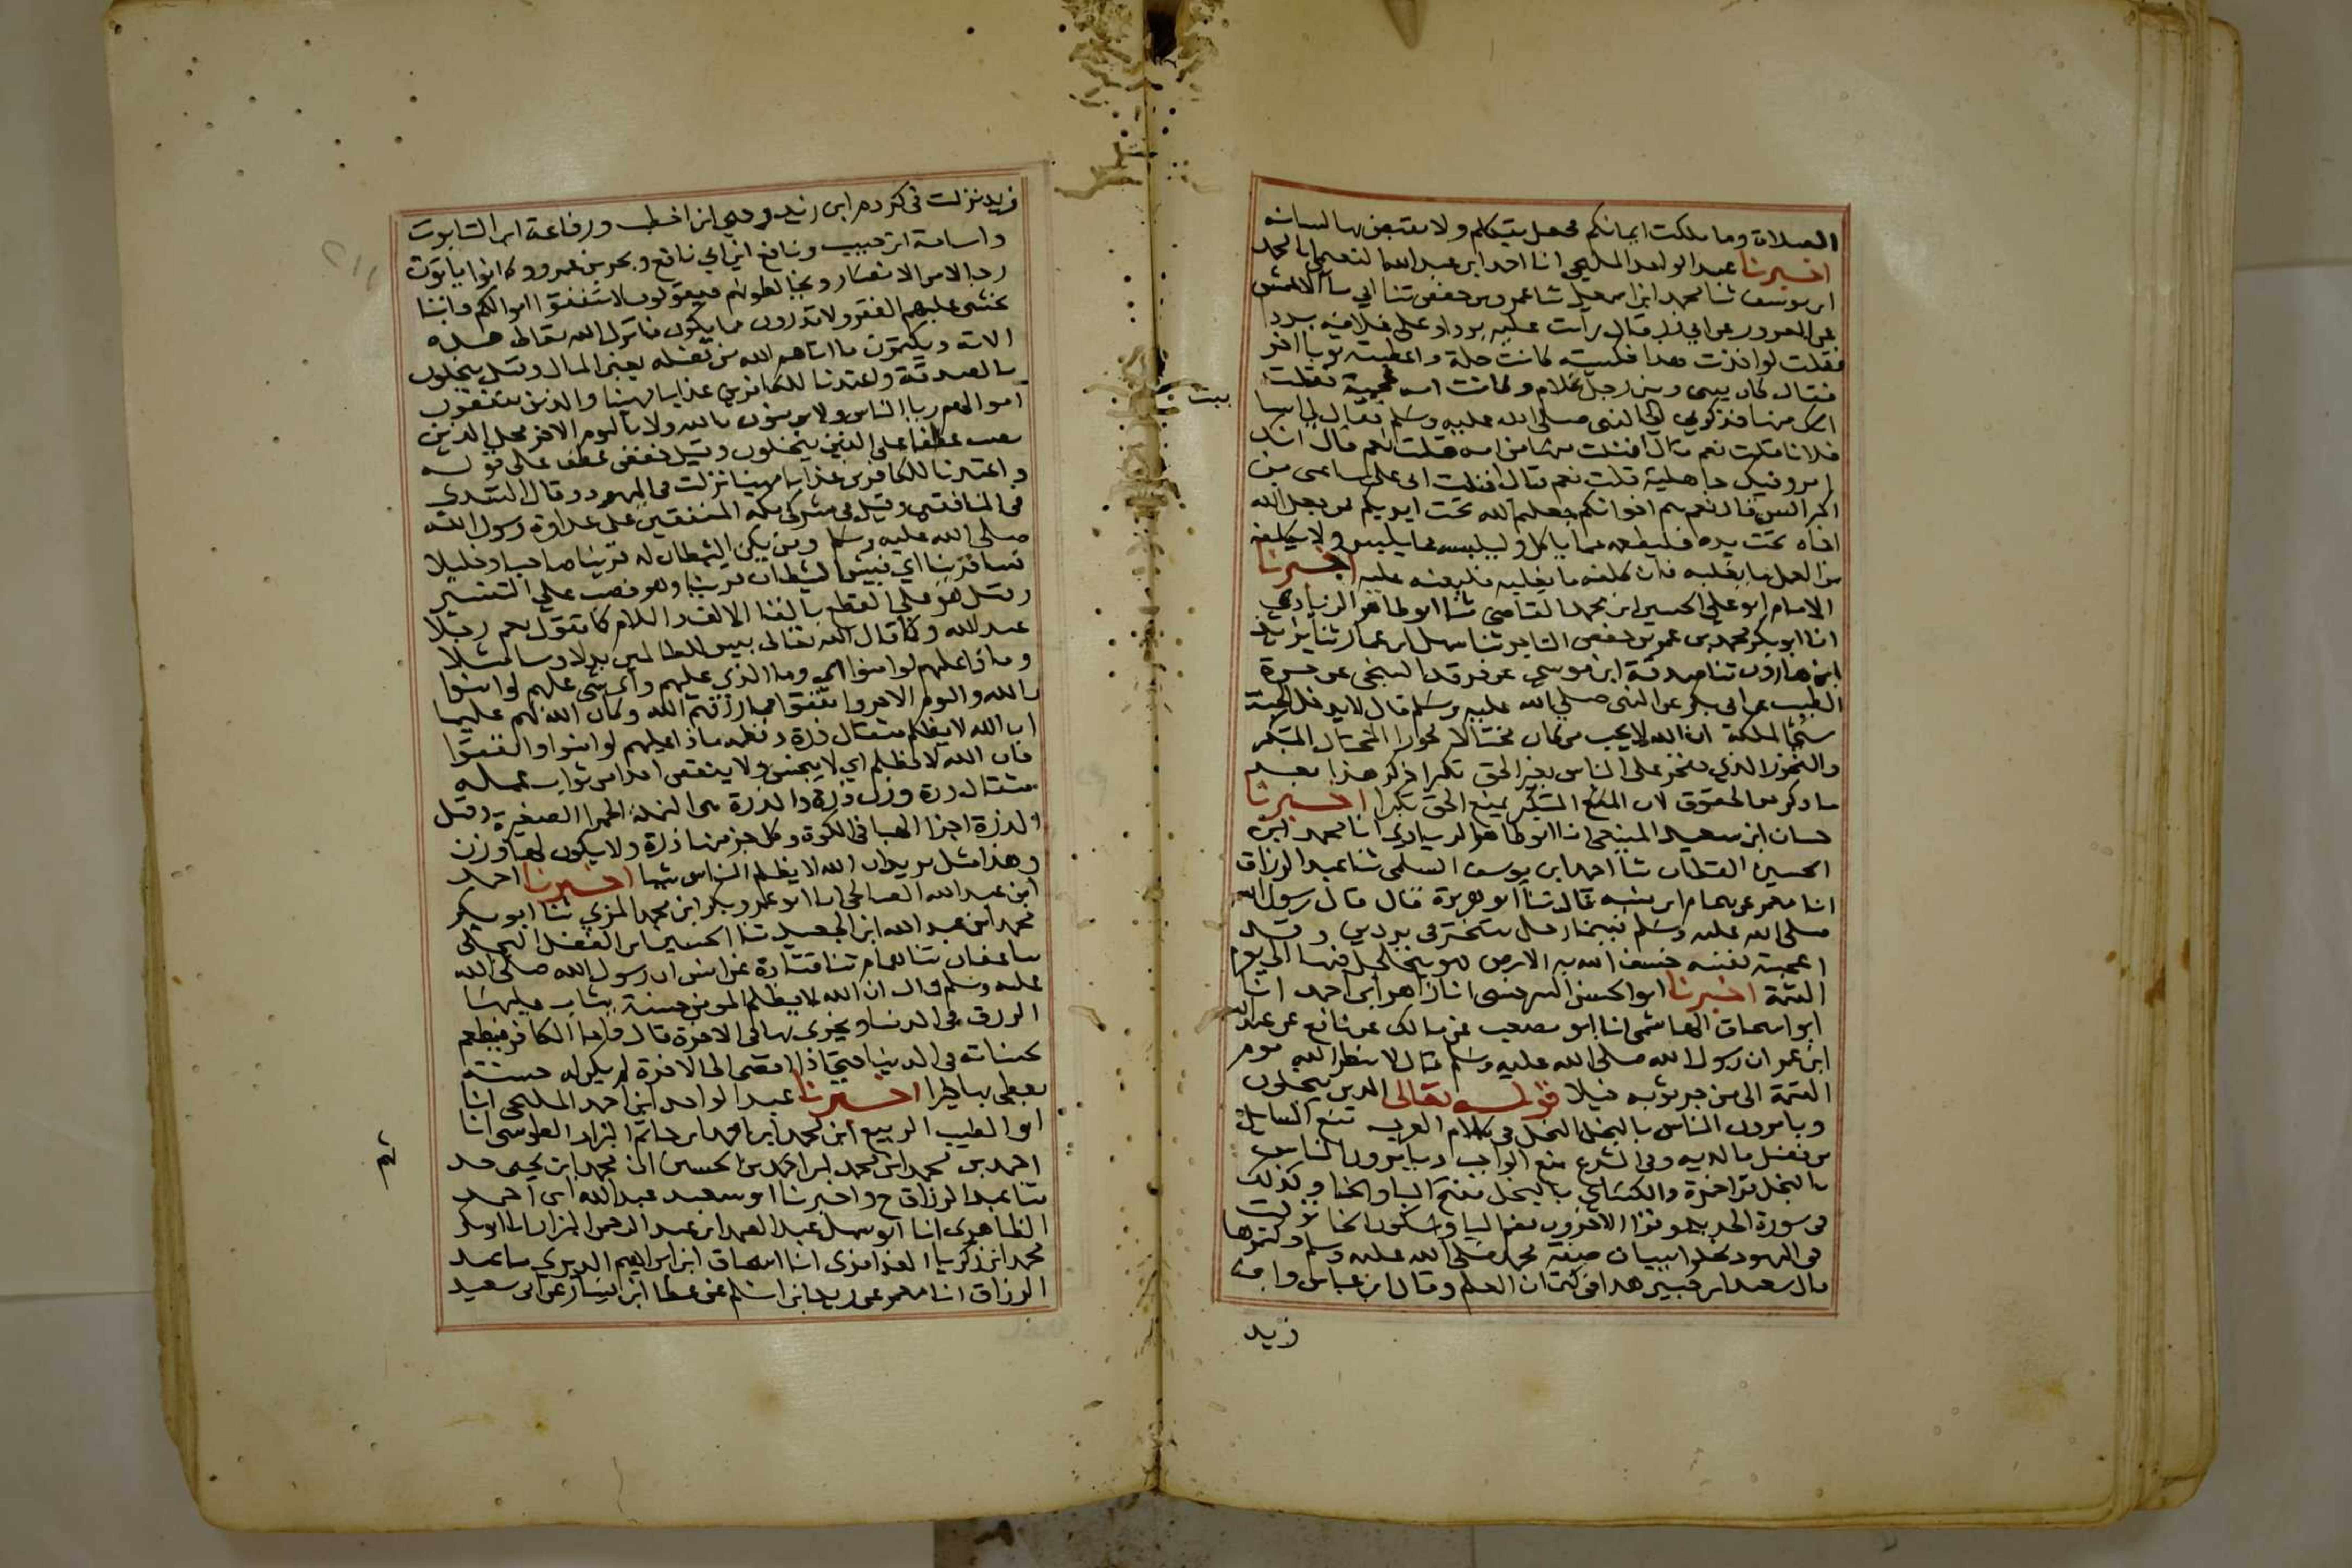 الصلاة وما ملكت ايمانكم فجعل يتكلم ولا يفيض بها لسانه
اخبرنا عبد الواحد المليحي انا احمد ابن عبد الله النعيمي انا محمد
ابن يوسف ثنا محمد ابن اسمعيل ثنا عمر بن حفص ثنا ابي سا الاعمش
عن المعرور عن ابي ذر قال رايت عليه بردا وعلى غلامه بردا
فقلت لو اخذت هذا فلبسته كانت حلة واعطيته ثوبا اخر
فقال كان بيني وبين رجل كلام وكانت امه عجمية فقلت
منها فذكرني الى النبي صلى الله عليه وسلم فقال لي اساببت
فلانا قلت نعم قال افنلت من امه قلت نعم قال انك
امرو فيك جاهلية قلت نعم قال قلت على ساعتي من
كبر السن قال نعم هم اخوانكم جعلهم الله تحت ايديكم فمن جعل الله
اخاه تحت يده فليطعمه مما ياكل وليلبسه مما يلبس ولا يكلفه
من العمل ما يغلبه فان كلفه ما يغلبه فليعنه عليه اخبرنا
الامام ابو علي الحسين ابن محمد القاضي ثنا ابو طاهر الزيادي
انا ابو بكر محمد بن عمر بن حفص التاجر ثنا سهل ابن عمار ثنا يزيد
ابن هارون ثنا صدقة ابن موسى عن فرقد السبخي عن مرة
الطيب عن ابي بكر عن النبي صلى الله عليه وسلم قال لا يدخل الجنة
سيئ الملكة ان الله لا يحب من كان مختالا فخورا المختال المتكبر
والفخور الذي يفخر على الناس بغير الحق تكبرا ذكر هذا بعد
ما ذكر من الحقوق لان المتكبر يمنع الحق تكبرا اخبرنا
حسان ابن سعيد المنيعي انا ابو طاهر الزيادي انا محمد ابن
الحسين القطان ثنا احمد ابن يوسف السلمي ثنا عبد الرزاق
انا معمر عن همام ابن منبه قال ثنا ابو هريرة قال قال رسول الله
صلى الله عليه وسلم بينما رجل يتبختر في بردين وقد
اعجبته نفسه خسف الله به الارض فهو يتجلجل فيها الى يوم
القيمة اخبرنا ابو الحسن السرخسي انا زاهر ابن احمد انا
ابو اسحاق الهاشمي انا ابو مصعب عن مالك عن نافع عن عبد الله
ابن عمر ان رسول الله صلى الله عليه وسلم قال لا ينظر الله يوم
القيمة الى من جر ثوبه خيلا قوله تعالى الذين يبخلون
ويامرون الناس بالبخل البخل في كلام العرب منع السايل
من فضل ما لديه وفي الشرع منع الواجب ويامرون الناس
بالبخل قرا حمزة والكساي بالبخل بفتح البا والخا وكذلك
في سورة الحديد وقرا الاخرون بضم البا وسكون الخا نزلت
في اليهود بخلوا ببيان صفة محمد صلى الله عليه وسلم وكتموها
قال سعيد ابن جبير هذا في كتمان العلم وقال ابن عباس وابن
زيد
زيد نزلت في كردم ابن زيد وحيي ابن اخطب ورفاعة ابن التابوت
واسامة ابن حبيب ونافع ابن ابي نافع وبحر بن عمرو وكانوا ياتون
رجالا من الانصار ويخالطونهم فيقولون لا تنفقوا اموالكم فاننا
نخشى عليهم الفقر ولا تدرون ما يكون فانزل الله تعالى هذه
الاية ويكتمون ما اتاهم الله من فضله يعني المال وقيل يبخلون
بالصدقة واعتدنا للكافرين عذابا مهينا والذين ينفقون
اموالهم ريا الناس ولا يومنون بالله ولا باليوم الاخر محل الذين
نصب عطفا على الذين يبخلون وقيل خفض عطف على قوله
واعتدنا للكافرين عذابا مهينا نزلت في اليهود وقال السدي
في المنافقين وقيل في مشركي مكة المنفقين على عداوة رسول الله
صلى الله عليه وسلم ومن يكن الشيطان له قرينا صاحبا وخليلا
فسا قرينا اي فبيس الشيطان قرينا وهو نصب على التفسير
وقيل هو على القطع بالقا الالف واللام كما تقول نعم رجلا
عبد الله وكما قال الله تعالى بيس للظالمين بدلا وسا مثلا
وماذا عليهم لو امنوا اي وما الذي عليهم واي شي عليهم لو امنوا
بالله واليوم الاخر وانفقوا مما رزقهم الله وكان الله بهم عليما
ان الله لا يظلم مثقال ذرة ونظمه ماذا عليهم لو امنوا وانفقوا
فان الله لا يظلم اي لا يبخس ولا ينقص احدا من ثواب عمله
مثقال ذرة وزن ذرة والذرة هي النملة الحمرا الصغيرة وقيل
الذرة اجزا الهبا في الكوة وكل جز منها ذرة ولا يكون لها وزن
وهذا مثل يريد ان الله لا يظلم الناس شيا اخبرنا احمد
ابن عبد الله الصالحي انا ابو عمر وبكر ابن محمد المزي ثنا ابو بكر
محمد ابن عبد الله ابن الحفيد ثنا الحسين ابن الفضل البجلي
سا عفان ثنا همام ثنا قتادة عن انس ان رسول الله صلى الله
عليه وسلم قال ان الله لا يظلم المومن حسنة يثاب عليها
الرزق في الدنيا ويجزى بها في الاخرة قال واما الكافر فيطعم
بحسناته في الدنيا حتى اذا افضى الى الاخرة لم يكن له حسنة
يعطى بها خيرا اخبرنا عبد الواحد ابن احمد المليحي انا
ابو الطيب الربيع ابن محمد ابن احمد ابن حاتم البزار الطوسي انا
احمد بن محمد ابن الحسين ان محمد ابن يحيى حد
ثهم
ثنا عبد الرزاق ح واخبرنا ابو سعيد عبد الله ابن احمد
الطاهري انا ابو سهل عبد الصمد ابن عبد الرحمن البزار انا ابو بكر
محمد ابن زكريا العذافري انا اسحاق ابن ابراهيم الدبري سا عبد
الرزاق انا معمر عن زيد ابن اسلم عن عطا ابن يسار عن ابي سعيد